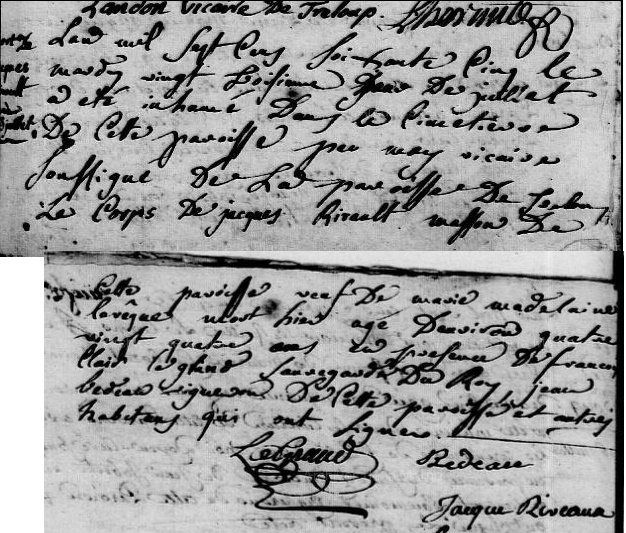 Landon vicaire De Treloup.
Land mil Sept Cens Soixante Cinq le
mardy vingt troisieme jour De juillet
a été inhumé Dans le Cimetierre
De Cette paroisse par moy vicaire
Soussigné De La paroisse De
Le Corps De jacques Rivault masson De
Cette paroisse veuf De marie madelaine
levêque mort hier agé Denviron quatre
vingt quatre ans en presence De francois
Clair legrand Sauvegarde Du Roy jean
bedeau vigneron De Cette paroisse et autres
habitans qui ont Signer.
LeGrand Bedeau
Jacque Riveaux